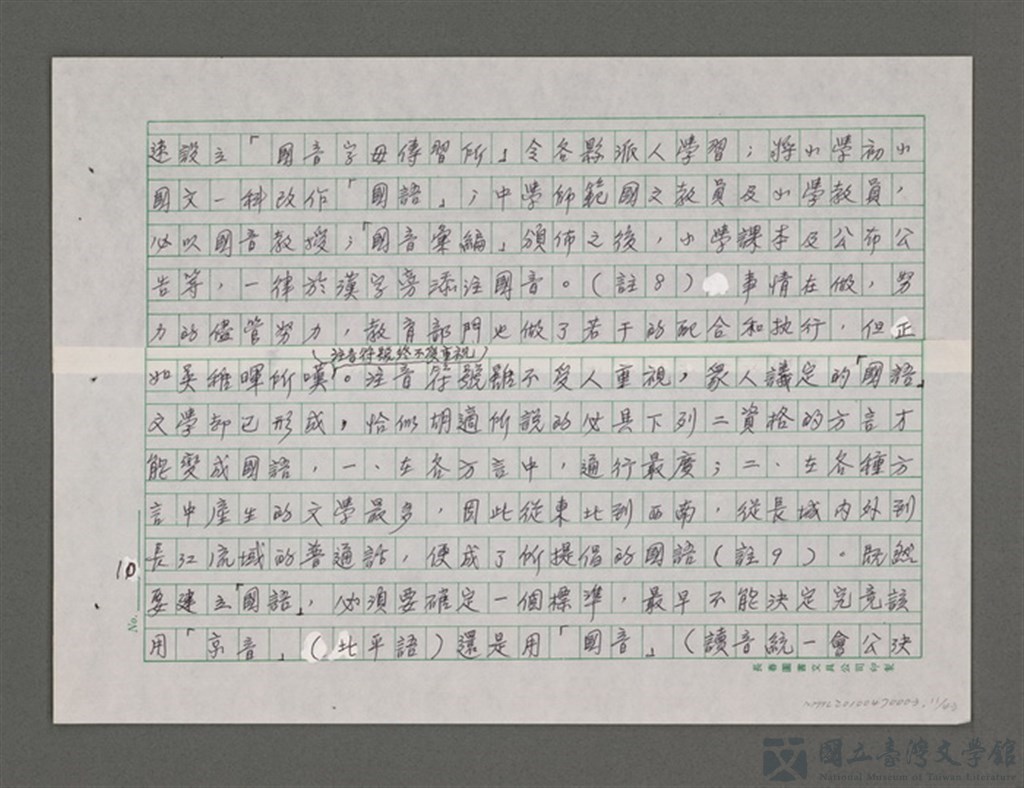 速設立「國音字母傳習所」令各縣派人學習；將小學初小
國文一科改作「國語」；中學師範國文教員及小學教員，
必以國音教授；「國音彙編」頒佈之後，小學課本及公布公
告等，一律於漢字旁添注國音。（註8）事情在做，努
力的儘管努力，教育部門也做了若干的配合和执行，但正
（注音符號終不獲重視）
如吳稚暉所嘆「。注音符號雖不受人重視，衆人議定的「國語」
文學却已形成，恰似胡適所說的必具下列二資格的方言才
能變成國語，一、在各方言中，通行最廣；二、在各種方
言中產生的文學最多，因此從東北到西南，從長城內外到
長江流域的普通話，便成了所提倡的國語（註9）。既然
要建立「國語」，必須要確定一個標準，最早不能決定究竟該
用「京音」（北平語）還是用「國音」（讀音統一會公決
No. 10
長春圖書文具公司印製
NMTL20100470003.11/43
國立臺灣文學館
National Museum of Taiwan Literature